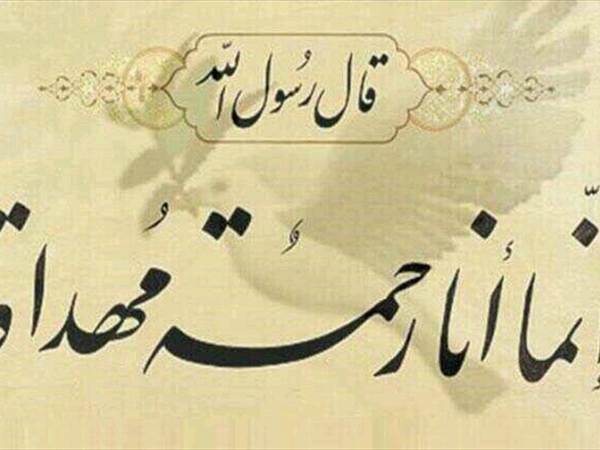 قال رسُول الله
إنّما أنا رحمةٌ مُهداة